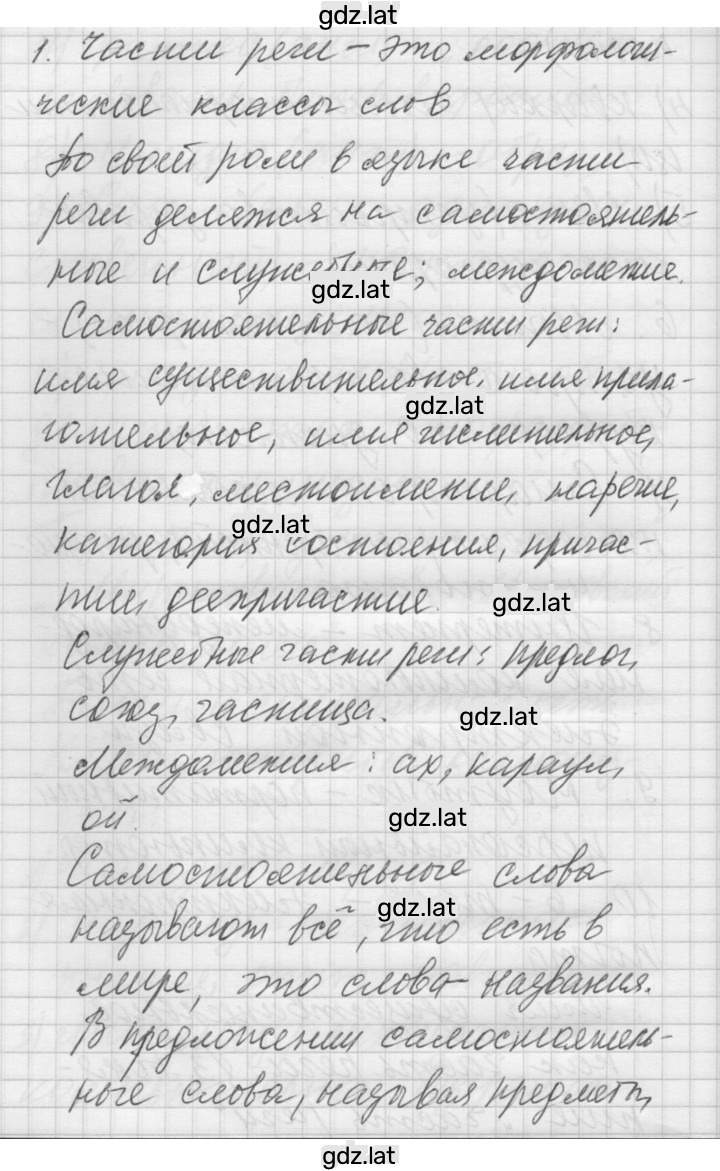 gdz.lat
1. Части речи – это морфологи-
ческие классы слов
По своей роли в языке части
речи делятся на самостоятель-
ные и служебные; междометие.
gdz.lat
Самостоятельные части речи:
имя существительное, имя прила-
gdz.lat
гательное, имя числительное,
глагол, местоимение, наречие,
gdz.lat
категория состояния, причас-
тие, деепричастие.
gdz.lat
Служебные части речи: предлог,
союз, частица.
gdz.lat
Междометия: ах, караул,
ой.
gdz.lat
Самостоятельные слова
gdz.lat
называют всё, что есть в
мире, это слова – названия.
В предложении самостоятель-
ные слова, называя предметы,
gdz.lat